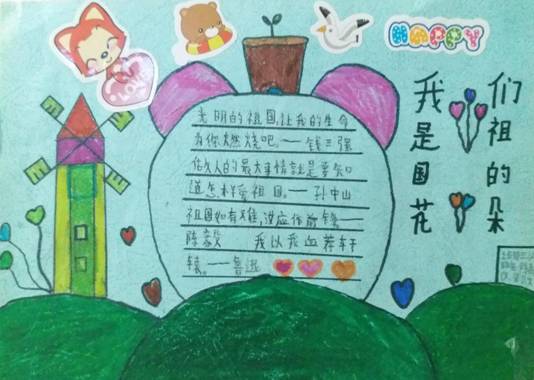 HAPPY
我是国花
们祖的朵
光明的祖国,让我的生命
为你燃烧吧。——钱三强
做人的最大事情就是要知
道怎样爱祖国。——孙中山
祖国如有难,汝应作前锋——
陈毅 我以我血荐轩
辕。——鲁迅